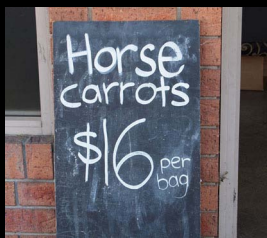 Horse
carrots
$16 per
bag